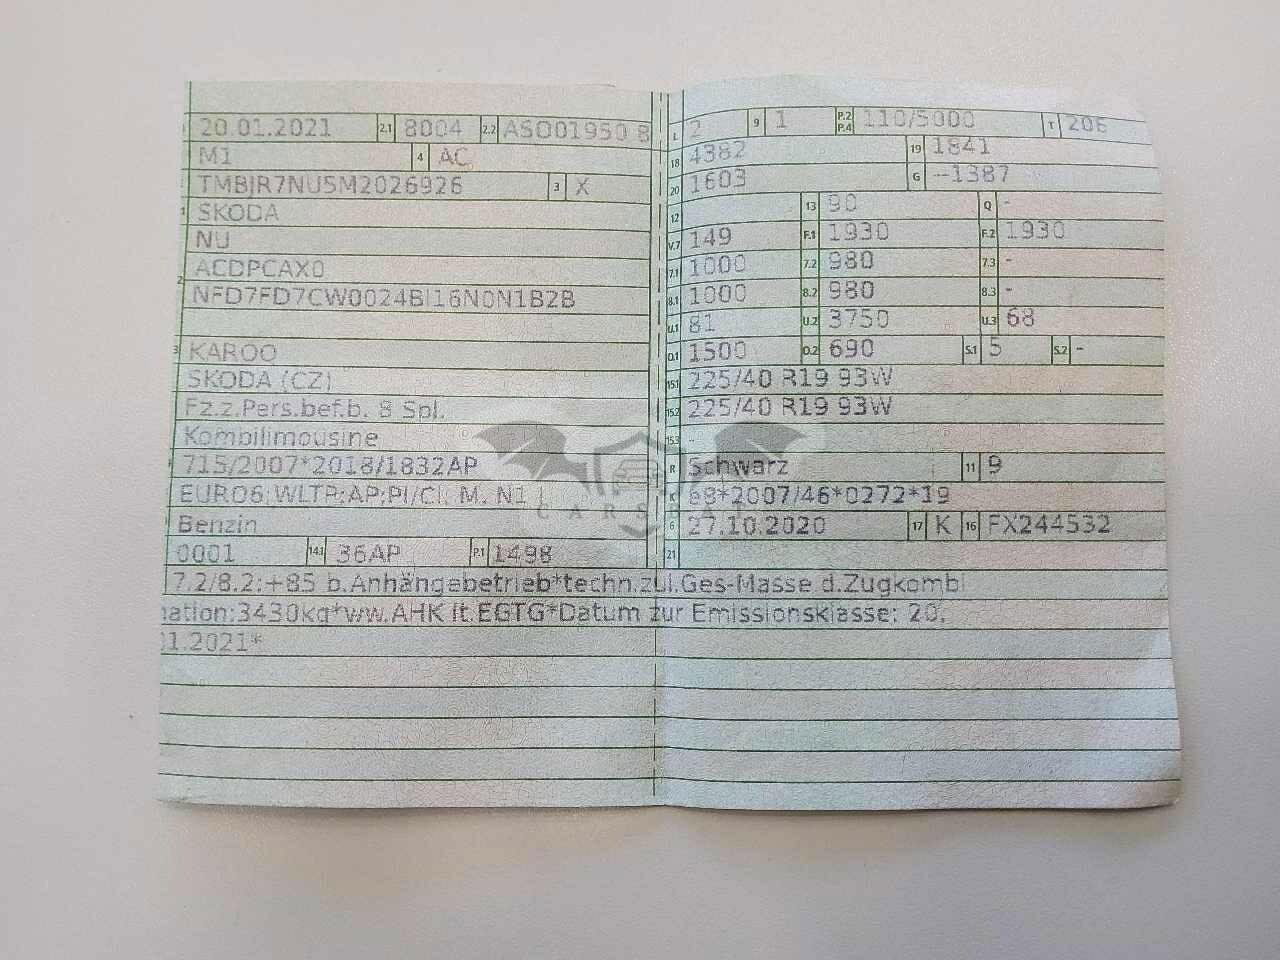 20.01.2021 2.1 8004 2.2 ASO01950 8
M1 4 AC
TMBJR7NU5M2026926 3 X
SKODA
NU
ACDPCAX0
NFD7FD7CW0024BI16N0N1B2B
3 KAROQ
SKODA (CZ)
Fz.z.Pers.bef.b. 8 Spl.
Kombilimousine
715/2007*2018/1832AP
EURO6;WLTP;AP;PI/CI, M, N1 I
Benzin
0001 14.1 36AP P.1 1498
L 2 9 1 P.2 P.4 110/5000 T 206
18 4382 19 1841
20 1603 G --1387
12 13 90 Q -
V.7 149 F.1 1930 F.2 1930
7.1 1000 7.2 980 7.3 -
8.1 1000 8.2 980 8.3 -
U.1 81 U.2 3750 U.3 68
O.1 1500 O.2 690 S.1 5 S.2 -
15.1 225/40 R19 93W
15.2 225/40 R19 93W
15.3 -
R Schwarz 11 9
K e8*2007/46*0272*19
6 27.10.2020 17 K 16 FX244532
21
7.2/8.2:+85 b.Anhängebetrieb*techn.zul.Ges-Masse d.Zugkombi
nation:3430kg*ww.AHK lt.EGTG*Datum zur Emissionsklasse: 20.
01.2021*
CARSBAT